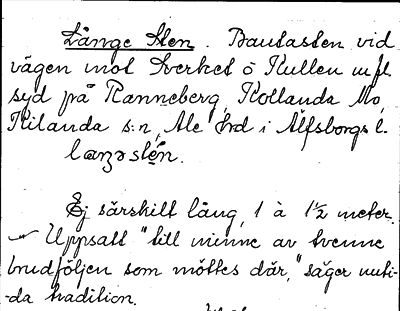 Långe Sten. Bautasten vid
vägen mot Sverket o Kullen m fl
syd på Ranneberg, Kollanda Mo,
Kilanda s:n, Ale hrd i Älfsborgs l.
laŋəstén.
Ej särskilt lång, 1 à 1½ meter.
Uppsatt "till minne av tvenne
brudföljen som möttes där," säger nuti-
-da tradition.